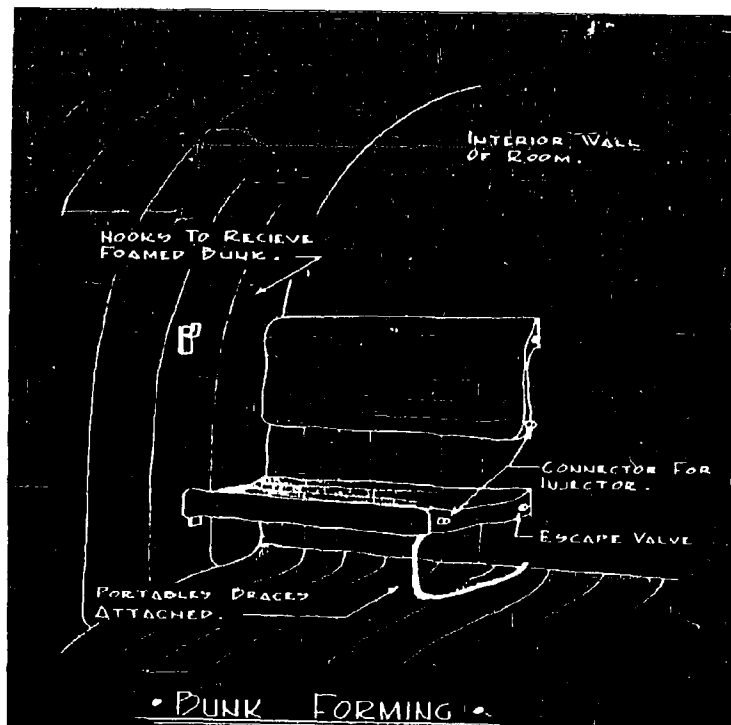 INTERIOR WALL
OF ROOM.
HOOKS TO RECIEVE
FOAMED BUNK.
CONNECTOR FOR
INJECTOR.
ESCAPE VALVE
PORTABLES BRACES
ATTACHED.
• BUNK FORMING •